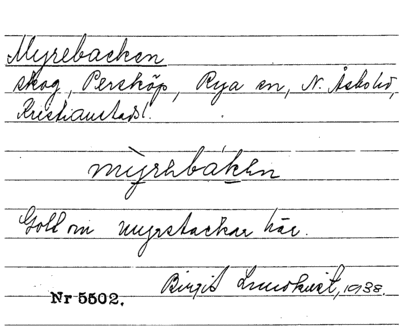 Myrebacken
skog, Perstöp, Rya sn, N. Åsbo hd,
Kristianstads l.
mỳrebáken
Gott om myrstackar här.
Birgit Lundkvist, 1938.
Nr 5502.